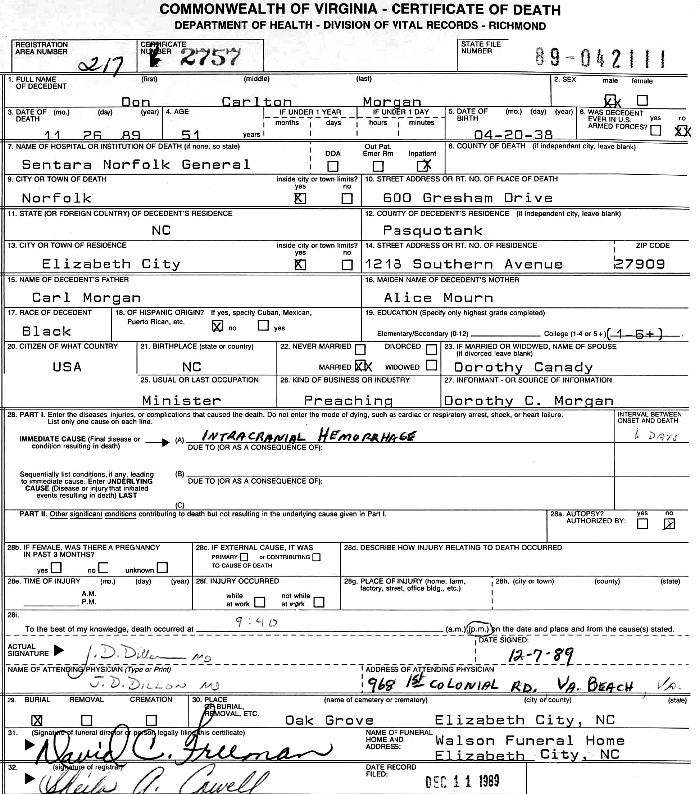 COMMONWEALTH OF VIRGINIA - CERTIFICATE OF DEATH
DEPARTMENT OF HEALTH - DIVISION OF VITAL RECORDS - RICHMOND
REGISTRATION AREA NUMBER 217 CERTIFICATE NUMBER 2757 STATE FILE NUMBER 89-042111
1. FULL NAME OF DECEDENT (first) (middle) (last) 2. SEX male female
Don Carlton Morgan XX
3. DATE OF DEATH (mo.) (day) (year) 4. AGE IF UNDER 1 YEAR IF UNDER 1 DAY 5. DATE OF BIRTH (mo.) (day) (year) 6. WAS DECEDENT EVER IN U.S. ARMED FORCES? yes no
months days hours minutes
11 26 89 51 years 04-20-38 XX
7. NAME OF HOSPITAL OR INSTITUTION OF DEATH (if none, so state) DOA Out Pat. Emer Rm Inpatient 8. COUNTY OF DEATH (if independent city, leave blank)
Sentara Norfolk General X
9. CITY OR TOWN OF DEATH inside city or town limits? yes no 10. STREET ADDRESS OR RT. NO. OF PLACE OF DEATH
Norfolk X 600 Gresham Drive
11. STATE (OR FOREIGN COUNTRY) OF DECEDENT'S RESIDENCE 12. COUNTY OF DECEDENT'S RESIDENCE (if independent city, leave blank)
NC Pasquotank
13. CITY OR TOWN OF RESIDENCE inside city or town limits? yes no 14. STREET ADDRESS OR RT. NO. OF RESIDENCE ZIP CODE
Elizabeth City X 1213 Southern Avenue 27909
15. NAME OF DECEDENT'S FATHER 16. MAIDEN NAME OF DECEDENT'S MOTHER
Carl Morgan Alice Mourn
17. RACE OF DECEDENT 18. OF HISPANIC ORIGIN? If yes, specify Cuban, Mexican, Puerto Rican, etc. 19. EDUCATION (Specify only highest grade completed)
Black X no yes Elementary/Secondary (0-12) College (1-4 or 5+) (1-6+)
20. CITIZEN OF WHAT COUNTRY 21. BIRTHPLACE (state or country) 22. NEVER MARRIED DIVORCED 23. IF MARRIED OR WIDOWED, NAME OF SPOUSE (if divorced leave blank)
USA NC MARRIED XX WIDOWED Dorothy Canady
25. USUAL OR LAST OCCUPATION 26. KIND OF BUSINESS OR INDUSTRY 27. INFORMANT - OR SOURCE OF INFORMATION
Minister Preaching Dorothy C. Morgan
28. PART I. Enter the diseases, injuries, or complications that caused the death. Do not enter the mode of dying, such as cardiac or respiratory arrest, shock, or heart failure. INTERVAL BETWEEN ONSET AND DEATH
List only one cause on each line.
IMMEDIATE CAUSE (Final disease or condition resulting in death) (A) INTRACRANIAL HEMORRHAGE DAYS
DUE TO (OR AS A CONSEQUENCE OF):
Sequentially list conditions, if any, leading to immediate cause. Enter UNDERLYING CAUSE (Disease or injury that initiated events resulting in death) LAST (B)
DUE TO (OR AS A CONSEQUENCE OF):
(C)
PART II. Other significant conditions contributing to death but not resulting in the underlying cause given in Part I. 28a. AUTOPSY? AUTHORIZED BY: yes no X
28b. IF FEMALE, WAS THERE A PREGNANCY IN PAST 3 MONTHS? 28c. IF EXTERNAL CAUSE, IT WAS 28d. DESCRIBE HOW INJURY RELATING TO DEATH OCCURRED
yes no unknown PRIMARY or CONTRIBUTING TO CAUSE OF DEATH
28e. TIME OF INJURY (mo.) (day) (year) 28f. INJURY OCCURRED 28g. PLACE OF INJURY (home, farm, factory, street, office bldg., etc.) 28h. (city or town) (county) (state)
A.M. P.M. while at work not while at work
28i.
To the best of my knowledge, death occurred at 9:40 (a.m.) (p.m.) on the date and place and from the cause(s) stated.
ACTUAL SIGNATURE J.D. Dillon MD DATE SIGNED: 12-7-89
NAME OF ATTENDING PHYSICIAN (Type or Print) ADDRESS OF ATTENDING PHYSICIAN
J.D. DILLON MD 968 1st COLONIAL RD. VA. BEACH, VA.
29. BURIAL REMOVAL CREMATION 30. PLACE OF BURIAL, REMOVAL, ETC. (name of cemetery or crematory) (city or county) (state)
X Oak Grove Elizabeth City, NC
31. (Signature of funeral director or person legally filing this certificate) NAME OF FUNERAL HOME AND ADDRESS: Walson Funeral Home
David C. Freeman Elizabeth City, NC
32. (signature of registrar) DATE RECORD FILED: DEC 11 1989
Sheila A. Crowell